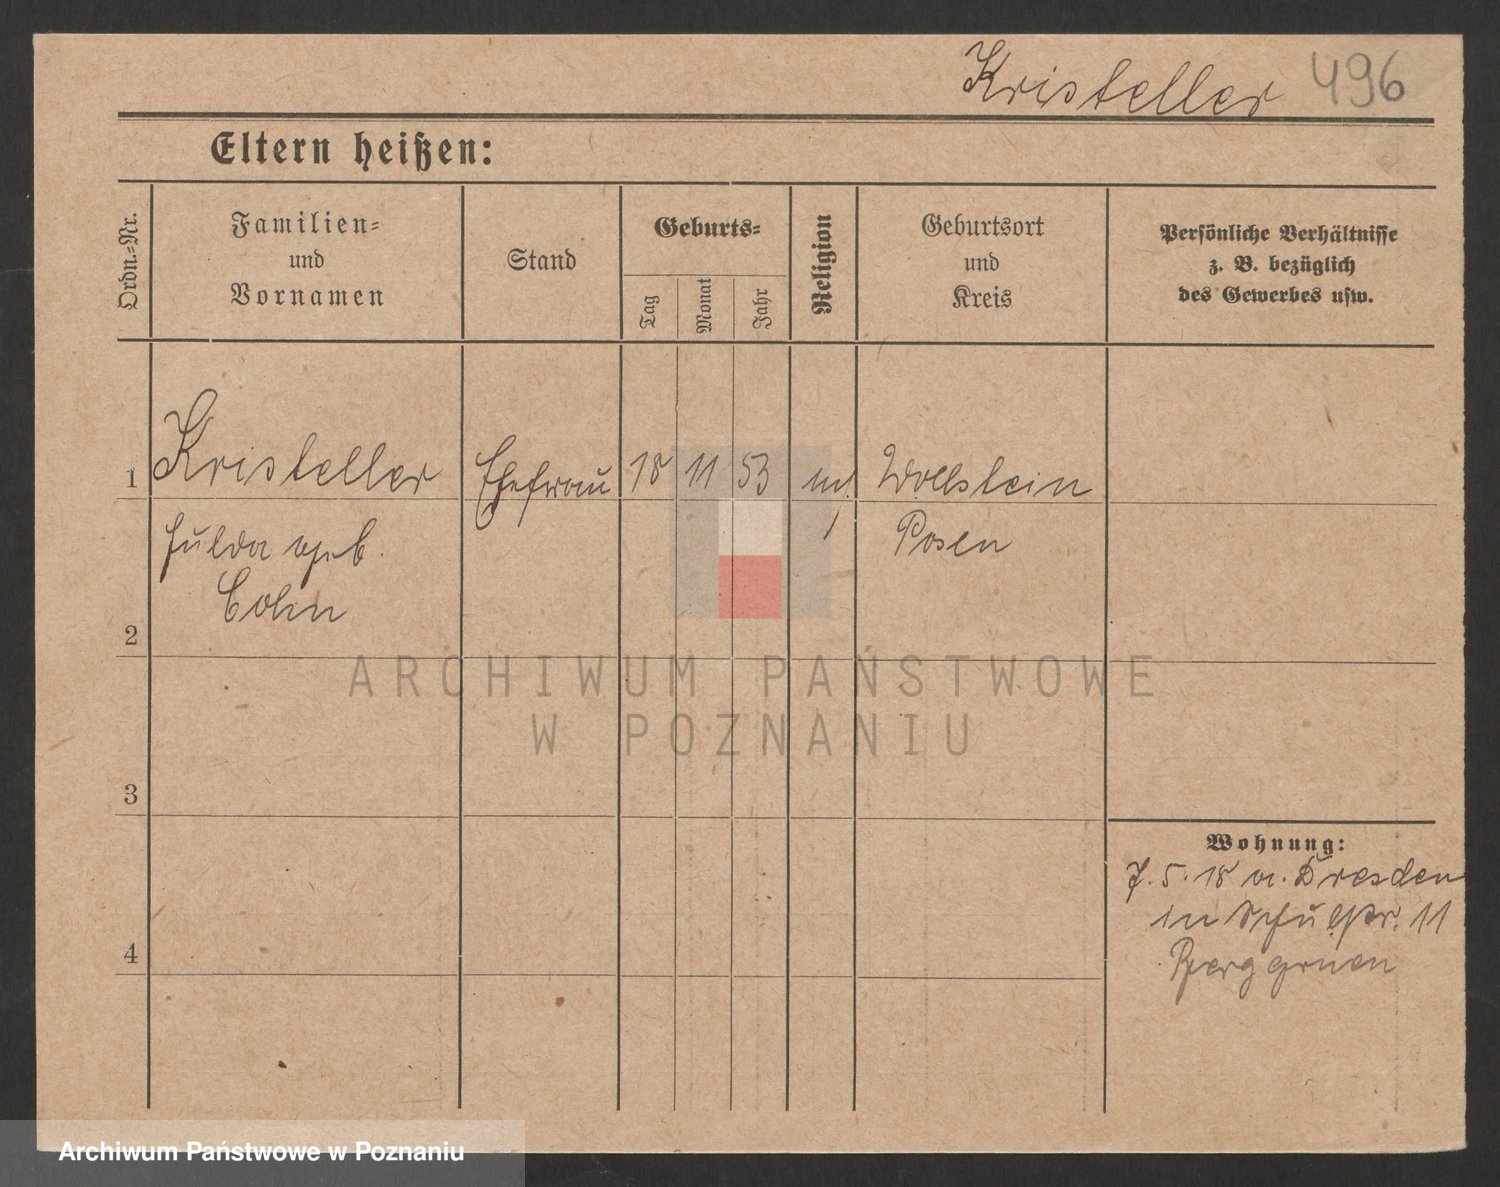 Kristeller 496
Eltern heißen:
Ordn.-Nr.
Familien-
und
Vornamen
Stand
Geburts-
Tag
Monat
Jahr
Religion
Geburtsort
und
Kreis
Persönliche Verhältnisse
z. B. bezüglich
des Gewerbes usw.
1 Kristeller Ehefrau 18 11 53 Wollstein
Fulda geb. Posen
Cohn
2
3
4
ARCHIWUM PAŃSTWOWE
W POZNANIU
Wohnung:
7. 5. 18 a. Dresden
in Schulstr. 11
Berggruen
Archiwum Państwowe w Poznaniu